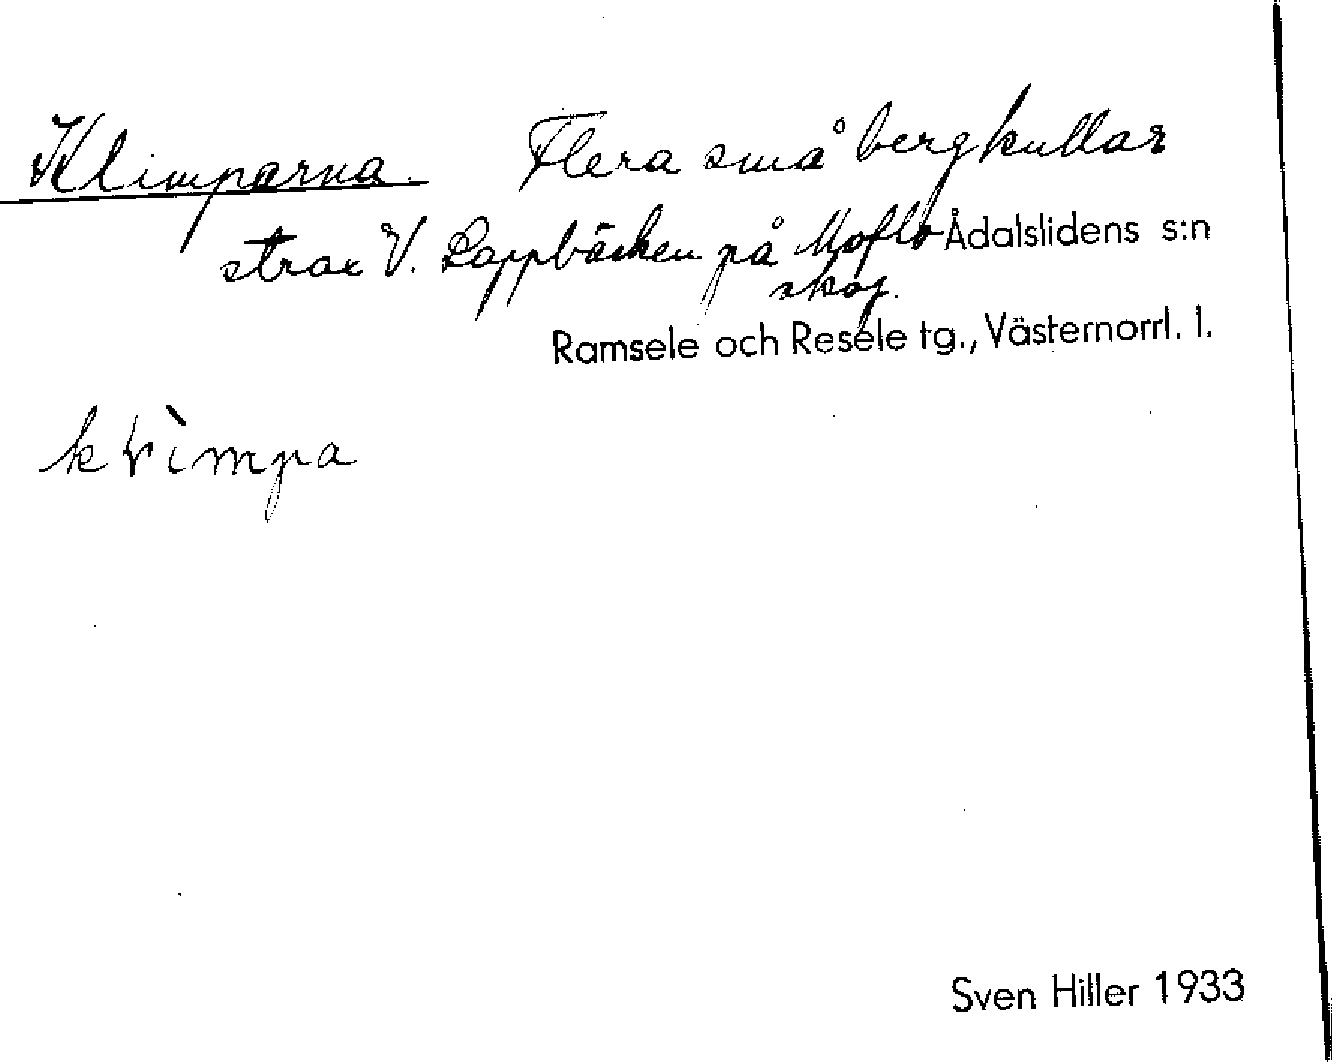 Klimparna. Flera små bergkullar
strax V. Lappbäcken på Moflo Ådalslidens s:n
skog.
Ramsele och Resele tg., Västernorrl. l.
Sven Hiller 1933